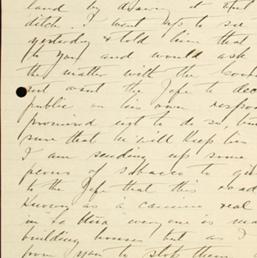 land by drawing it
ditch. I went up to see
yesterday & told him that
to you and would ask
the matter with the
not want the Jefe to
public on his own
promised not to do so, but
sure that he will keep
I am sending up some
pesos of tobacco to
to the Jefe that this road
known as a camino real
in to this everyone is
building houses but as I
from you to stop them